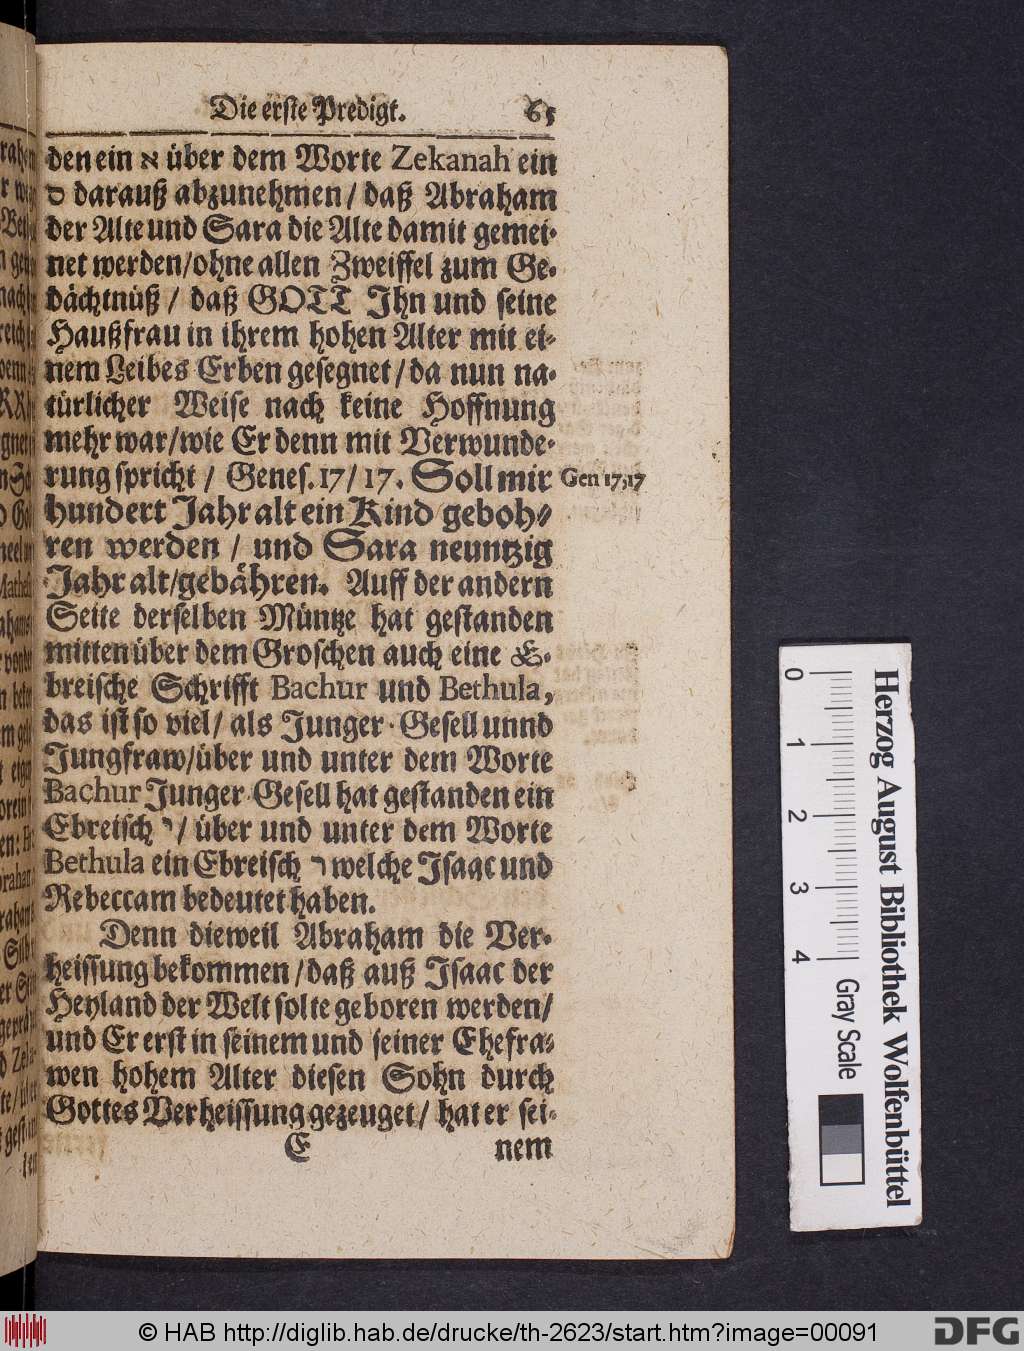 Die erste Predigt. 65
den ein א über dem Worte Zekanah ein
ס darauß abzunehmen / daß Abraham
der Alte und Sara die Alte damit gemei-
net werden/ohne allen Zweiffel zum Ge-
dächtnüß / daß GOTT Ihn und seine
Haußfrau in ihrem hohen Alter mit ei-
nem Leibes Erben gesegnet / da nun na-
türlicher Weise nach keine Hoffnung
mehr war/wie Er denn mit Verwunde-
rung spricht / Genes. 17/ 17. Soll mir
Gen 17,17
hundert Jahr alt ein Kind geboh-
ren werden / und Sara neuntzig
Jahr alt/gebähren. Auff der andern
Seite derselben Müntze hat gestanden
mitten über dem Groschen auch eine E-
breische Schrifft Bachur und Bethula,
das ist so viel/ als Junger-Gesell unnd
Jungfraw/über und unter dem Worte
Bachur Junger-Gesell hat gestanden ein
Ebreisch י / über und unter dem Worte
Bethula ein Ebreisch ר welche Isaac und
Rebeccam bedeutet haben.
Denn dieweil Abraham die Ver-
heissung bekommen /daß auß Isaac der
Heyland der Welt solte geboren werden/
und Er erst in seinem und seiner Ehefra-
wen hohem Alter diesen Sohn durch
Gottes Verheissung gezeuget / hat er sei-
E nem
0 1 2 3 4
Gray Scale
Herzog August Bibliothek Wolfenbüttel
© HAB http://diglib.hab.de/drucke/th-2623/start.htm?image=00091
DFG